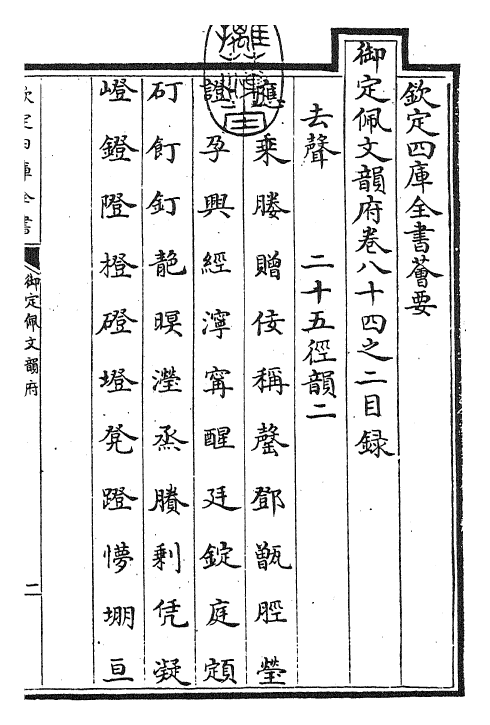 欽定四庫全書薈要
御定佩文韻府卷八十四之二目録
去聲 二十五徑韻二
應乘媵贈倿稱罄鄧甑脛瑩
證孕興經濘甯醒廷錠庭顁
矴飣釘靘暝瀅烝賸剩凭凝
嶝鐙隥橙磴墱凳蹬懜堋亘
欽定四庫全書
御定佩文韻府